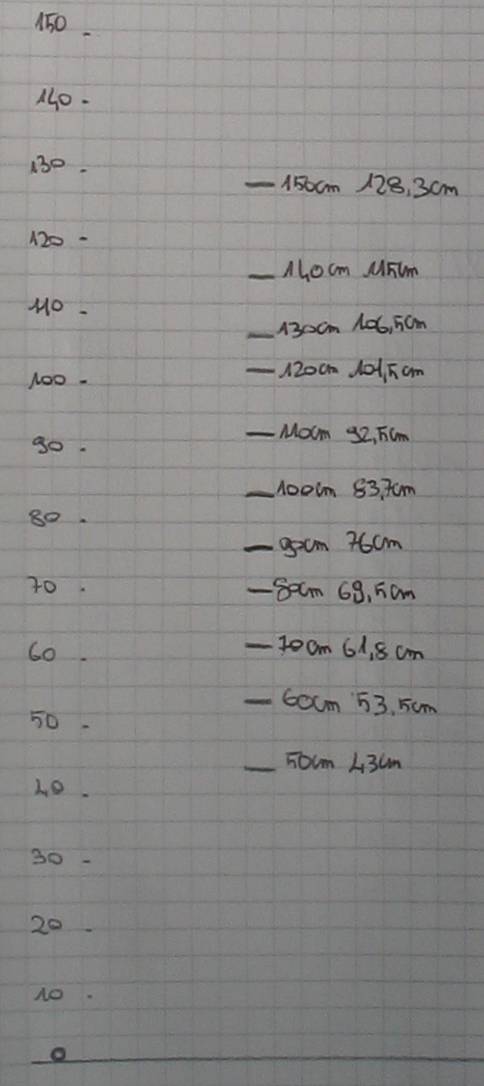 150
140
130
150cm 128,3cm
120
140cm 115cm
110
130cm 106,5cm
120cm 101,5cm
100
110cm 92,5cm
90
100cm 83,7cm
80
90cm 76cm
70
80cm 69,5cm
60
70cm 61,8cm
60cm 53,5cm
50
50cm 43cm
40
30
20
10
0